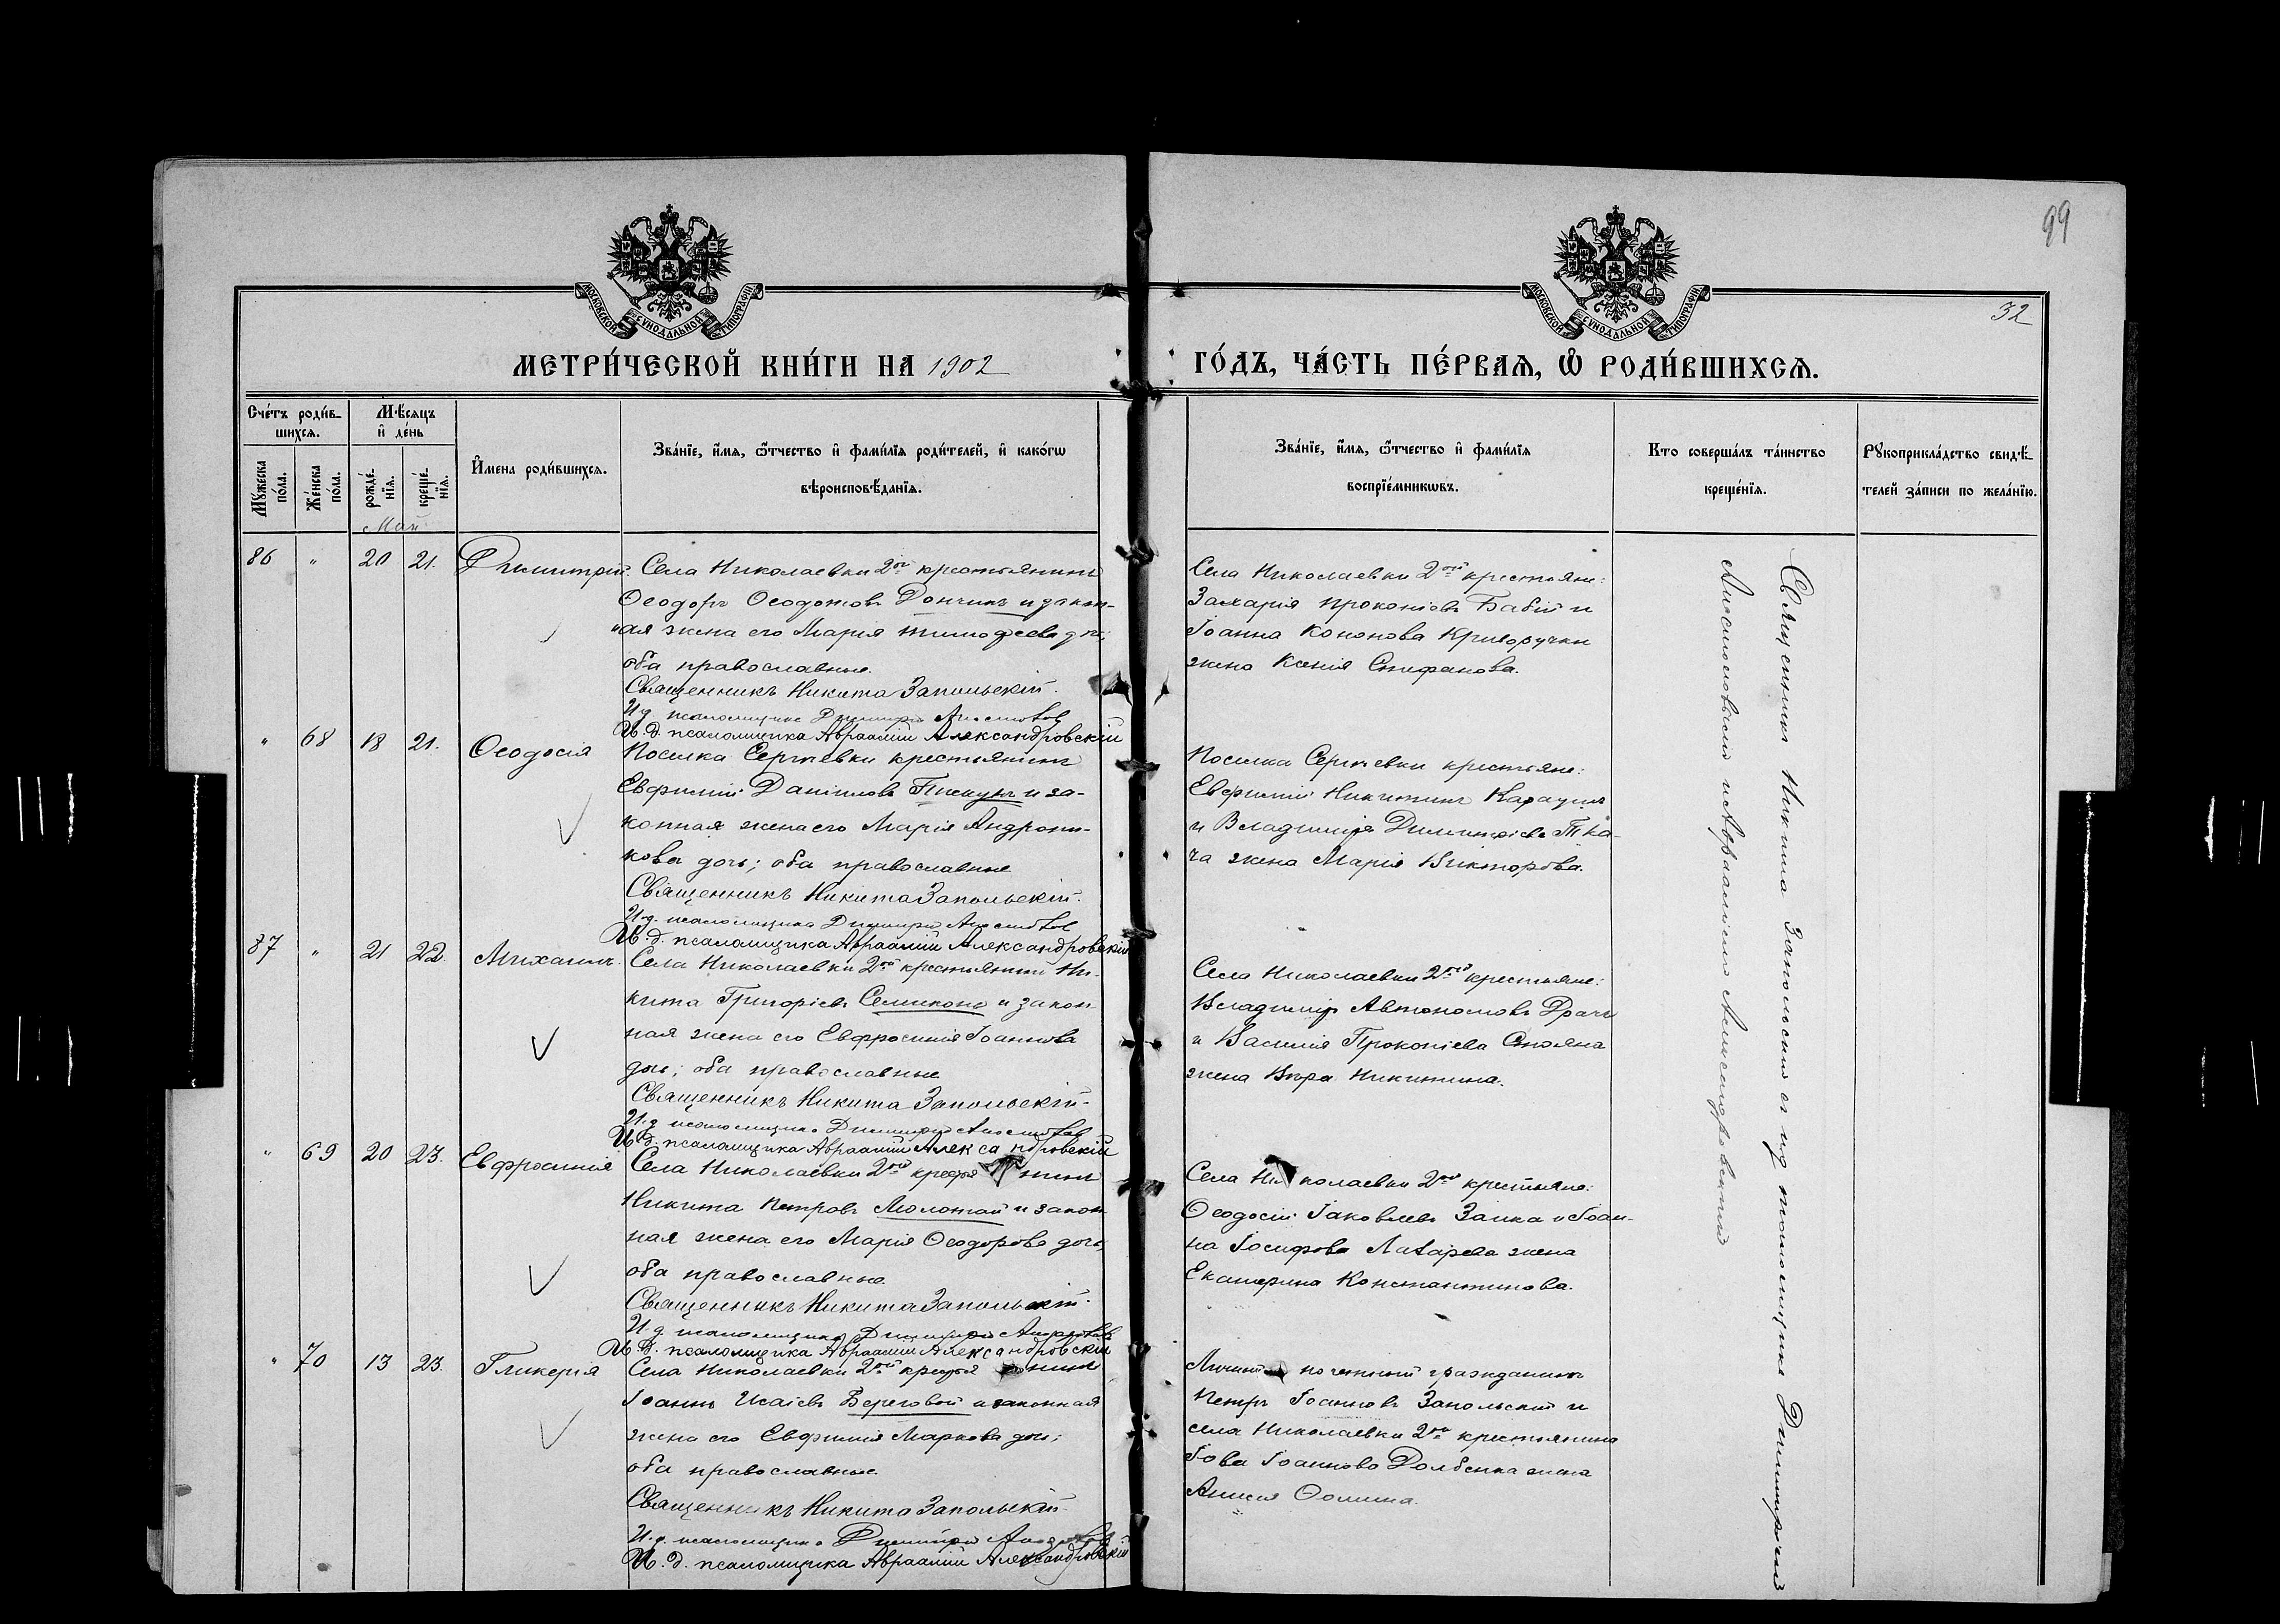 99
32
МОСКОВСКОЙ СѴНОДАЛЬНОЙ ТИПОГРАФІИ
МОСКОВСКОЙ СѴНОДАЛЬНОЙ ТИПОГРАФІИ
МЕТРИ́ЧЕСКОЙ КНИ́ГИ НА 1902
ГО́ДЪ, ЧА́СТЬ ПЕ́РВАѦ, Ѡ҆ РОДИ́ВШИХСѦ.
Сче́тъ роди́в-
шихсѧ.
Мѣ́сѧцъ
и҆ де́нь
Мꙋ́жеска
по́ла.
Же́нска
по́ла.
рожде́-
нїѧ.
креще́-
нїѧ.
И҆мена роди́вшихсѧ.
Зва́нїе, и҆́мѧ, ѻ҆́тчество и҆ фами́лїѧ роди́телей, и҆ како́гѡ
вѣроисповѣ́данїѧ.
Зва́нїе, и҆́мѧ, ѻ҆́тчество и҆ фами́лїѧ
воспрїе́мникѡвъ.
Кто соверша́лъ та́инство
креще́нїѧ.
Рꙋкоприкла́дство свидѣ́-
телей за́писи по жела́нїю.
Май
86 " 20 21. Димитрій.
Села Николаевки 2ой крестьянинъ
Ѳеодоръ Ѳеодотовъ Дончикъ и закон-
ная жена его Марія Тимоѳеева дочь;
оба православные.
Священникъ Никита Запольскій.
И.д. псаломщика Димитрій
И.д. псаломщика Авраамій Александровскій
Села Николаевки 2ой крестьяне:
Захарія Прокопіевъ Бабій и
Іоанна Кононова Криворучки
жена Ксенія Стефанова.
" 68 18 21. Ѳеодосія
Поселка Сергѣевки крестьянинъ
Евфимій Даніиловъ Пискунъ и за-
конная жена его Марія Андрони-
кова дочь; оба православные
Священникъ Никита Запольскій.
И.д. псаломщика Димитрій
И.д. псаломщика Авраамій Александровскій
Поселка Сергѣевки крестьяне:
Евфимій Никитинъ
и Владиміра Димитріева Тка-
ча жена Марія Викторова.
87 " 21 22 Михаилъ.
Села Николаевки 2ой крестьянинъ Ни-
кита Григоріевъ Семиконь и закон-
ная жена его Евфросинія Іоаннова
дочь; оба православные
Священникъ Никита Запольскій.
И.д. псаломщика Димитрій
И.д. псаломщика Авраамій Александровскій
Села Николаевки 2ой крестьяне:
Владиміръ Автономовъ Драчъ
и Василія Прокопіева Стояна
жена Вѣра Никитина.
" 69 20 23. Евфросинія
Села Николаевки 2ой крестьянинъ
Никита Петровъ Молотай и закон-
ная жена его Марія Ѳеодорова дочь;
оба православные.
Священникъ Никита Запольскій.
И.д. псаломщика Димитрій
И.д. псаломщика Авраамій Александровскій
Села Николаевки 2ой крестьяне:
Ѳеодосій Іаковлевъ Заика и Іоан-
на Іосифова Лазарева жена
Екатерина Константинова.
" 70 13 23. Гликерія
Села Николаевки 2ой крестьянинъ
Іоаннъ Исаіевъ Береговой и законная
жена его Евфимія Маркова дочь;
оба православные.
Священникъ Никита Запольскій
И.д. псаломщика Димитрій
И.д. псаломщика Авраамій Александровскій
Личный почетный гражданинъ
Петръ Іоанновъ Запольскій и
села Николаевки 2ой крестьянина
Іова Іоаннова Долбенка жена
Анисія Ѳомина.
Священникъ Никита Запольскій съ и.д. псаломщика Димитріемъ
и Авраамiемъ Александровскимъ